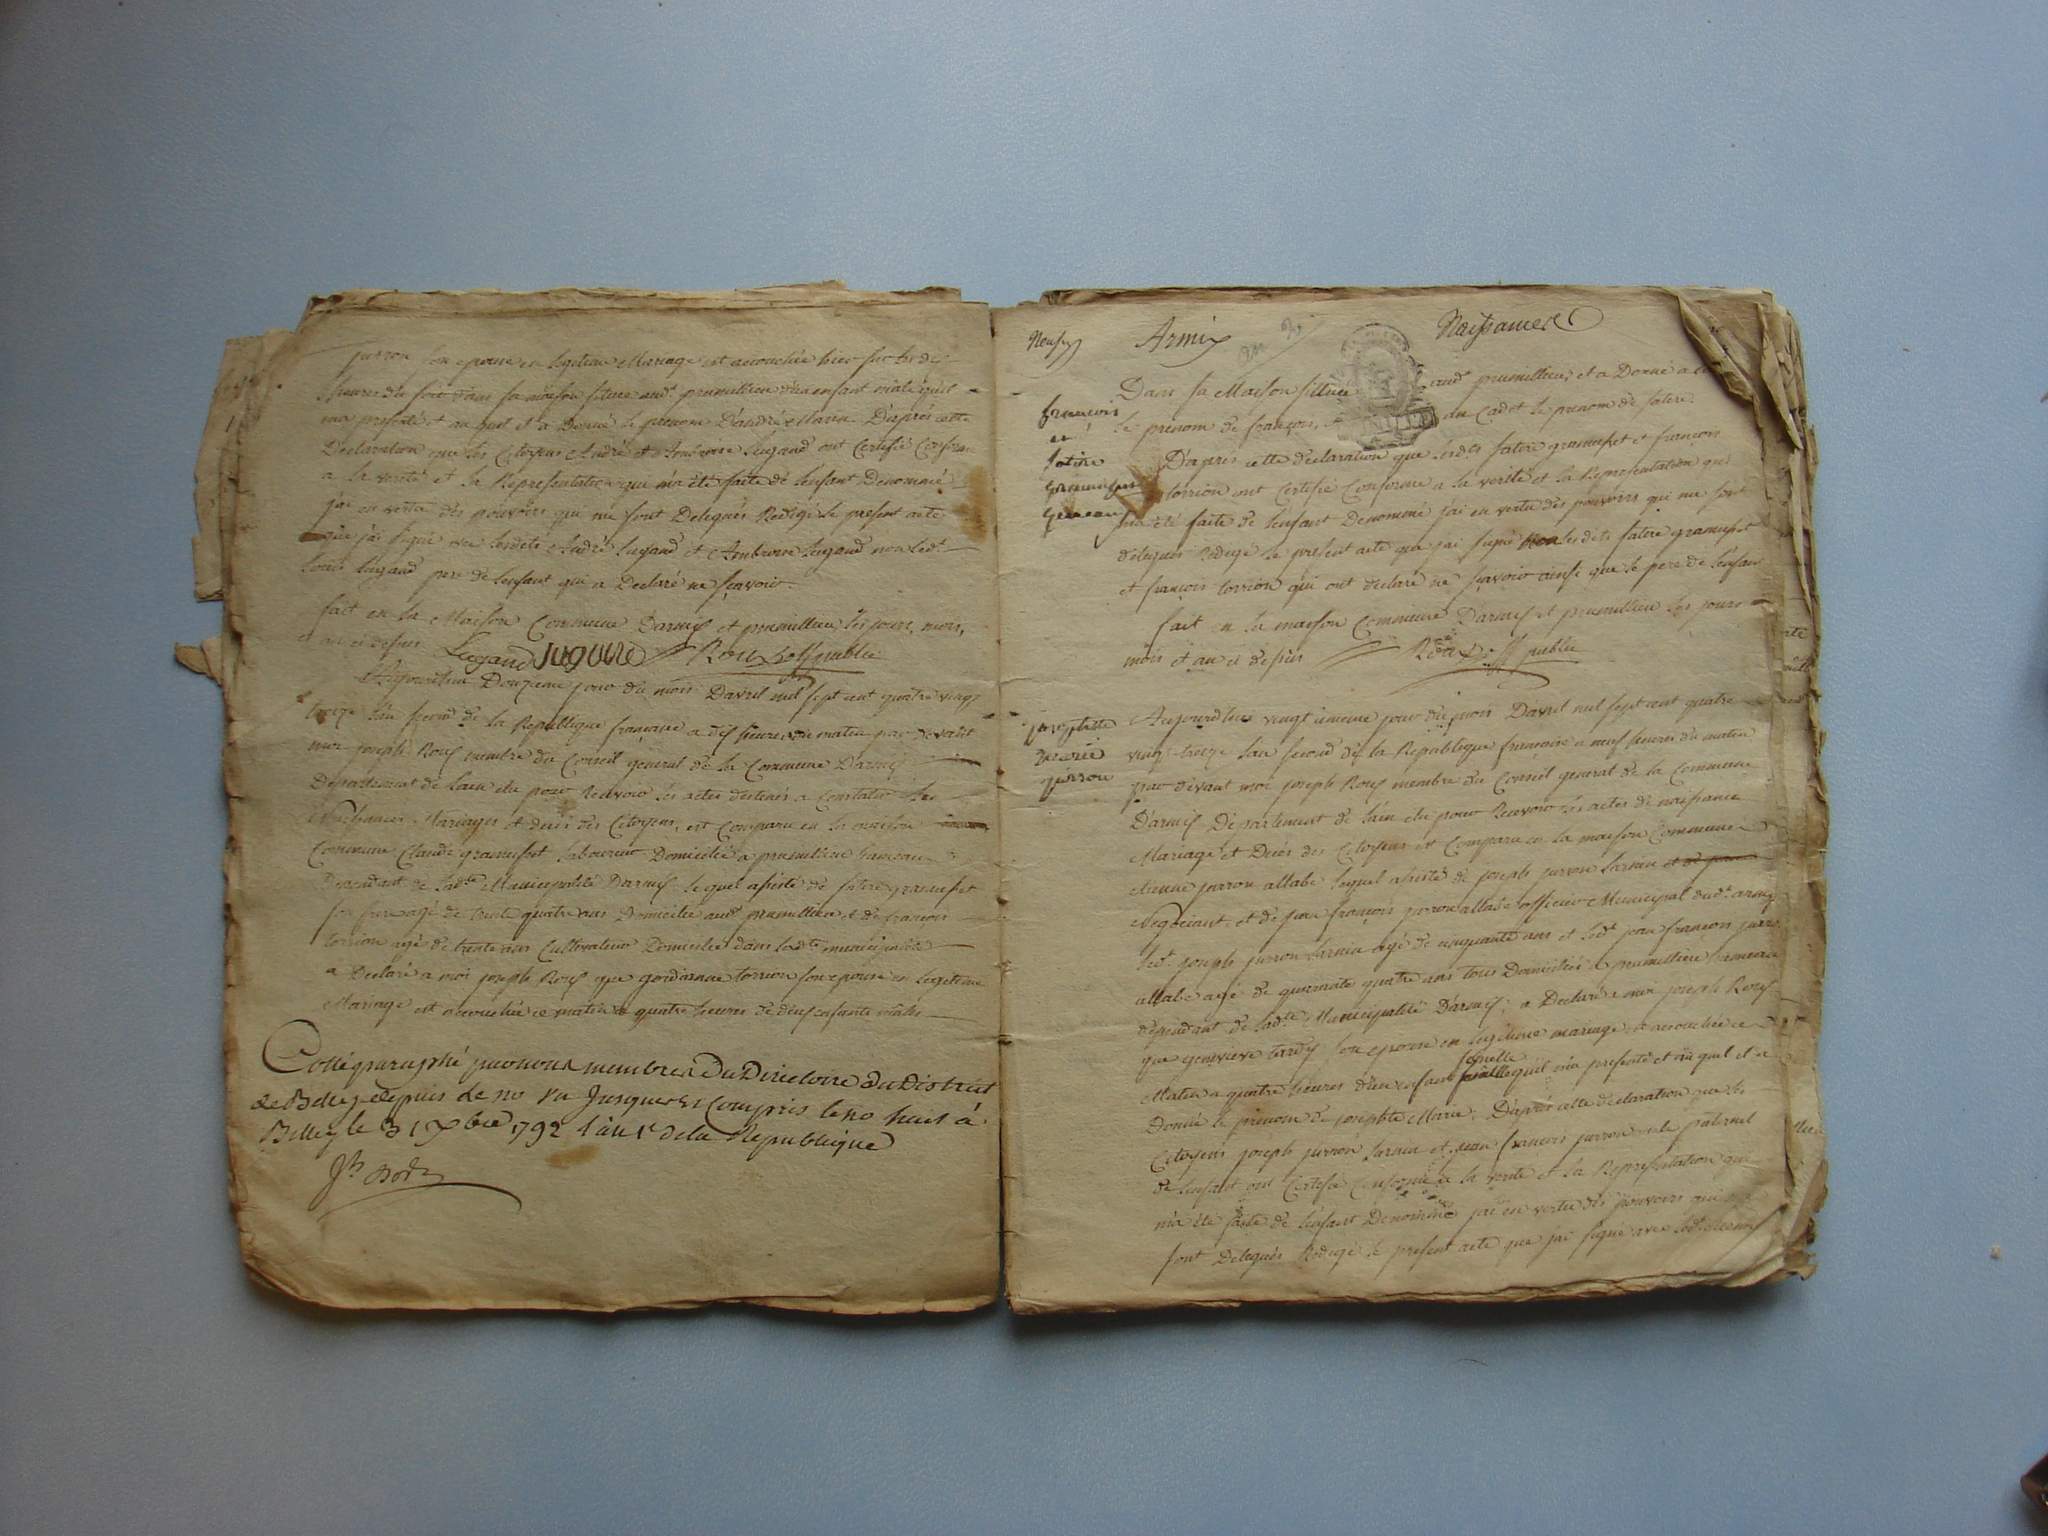 jurron son epouse en legitime Mariage est accouchée hier sur les dix
heures du soir dans sa maison située aud.t premillieu d'un enfant male qu'il
ma presenté et au quel il a Donné le prenom D'andré Marin D'après cette
Declaration que les Citoyens André et Ambroise Lugand ont Certifié Conforme
a la verité et la Representation qui m'a été faite de l'enfant Denommé
j'ai en vertu des pouvoirs qui me sont Delegués Redigé le present acte
que j'ai signé avec lesdits André Lugand et Ambroise Lugand non led.t
Louis Lugand pere de l'enfant qui a Declaré ne sçavoir.
fait en la Maison Commune Darmix et premillieu, les jours, mois,
et an ci dessus Lugand Roux off. public
Aujourd'hui Douzieme jour du mois Davril mil sept cent quatre vingt
treize l'an second de la Republique française a dix heures du matin par devant
moi joseph Roux membre du Conseil general de la Commune Darmix
Departement de Lain elu pour Recevoir les actes destinés a Constater les
Naissances Mariages et decés des Citoyens, est Comparu en la maison
Commune Claude gramusset laboureur Domicilié a premillieu hameau
Dependant de lad.te Municipalité Darmix lequel assisté de fatere gramusset
son frere agé de trente quatre ans Domicilié aud.t premillieu et de françois
torrion agé de trente ans Cultivateur Domicilié dans lad.te municipalité
a Declaré a moi joseph Roux que torrion son epouse en legitime
Mariage est accouchée ce matin a quatre heures de deux enfants males
Cotté paraphé par nous membre du Directoire du District
de Belley depuis le no un Jusques et compris le no huit à
Belley le 31 Xbre 1792 l'an 1er de la Republique
Neuf
Armix
Naissances
françois
et
fatere
gramusset
gemeaux
Dans sa Maison située aud.t premillieu; et a Donné a
le prenom de françois, et au Cadet le prenom de fatere.
D'après cette declaration que lesdts fatere gramusset et françois
torrion ont Certifié Conforme a la verité et la Representation qui
m'a été faite de l'enfant Denommé j'ai en vertu des pouvoirs qui me sont
delegués redigé le present acte que j'ai signé non lesdits fatere gramusset
et françois torrion qui ont declaré ne sçavoir ainsi que le pere de l'enfant
fait en la maison Commune Darmix et premillieu les jours
mois et an ci dessus Roux off public
josephte
marie
jurron
Aujourd'hui vingt unieme jour du mois Davril mil sept cent quatre
vingt treize l'an second de la Republique française a neuf heures du matin
par devant moi joseph Roux membre du Conseil general de la Commune
D'armix Departement de Lain elu pour Recevoir les actes de naissance
Mariage et Decés des Citoyens est Comparu en la maison Commune
etienne jurron allabe lequel assisté de joseph jurron larnin
Negociant et de jean françois jurron allabe officier Municipal dud.t armix
led.t joseph jurron larnin agé de cinquante ans et led.t jean françois jurron
allabe agé de quarante quatre ans tous Domiciliés a premillieu hameau
dependant de lad.te Municipalité D'armix; a Declaré a moi joseph Roux
que genevieve tardy son epouse en legitime mariage, a accouchée ce
Matin a quatre heures d'un enfant femelle lequel m'a presenté et au quel il a
Donné le prenom de josephte Marie; D'après cette declaration que les
Citoyens joseph jurron larnin et jean françois jurron oncle paternel
de l'enfant ont Certifié Conforme a la verité et la Representation qui
m'a été faite de l'enfant Denommé j'ai en vertu des pouvoirs qui me
sont Delegués Redigé le present acte que j'ai signé avec led.t